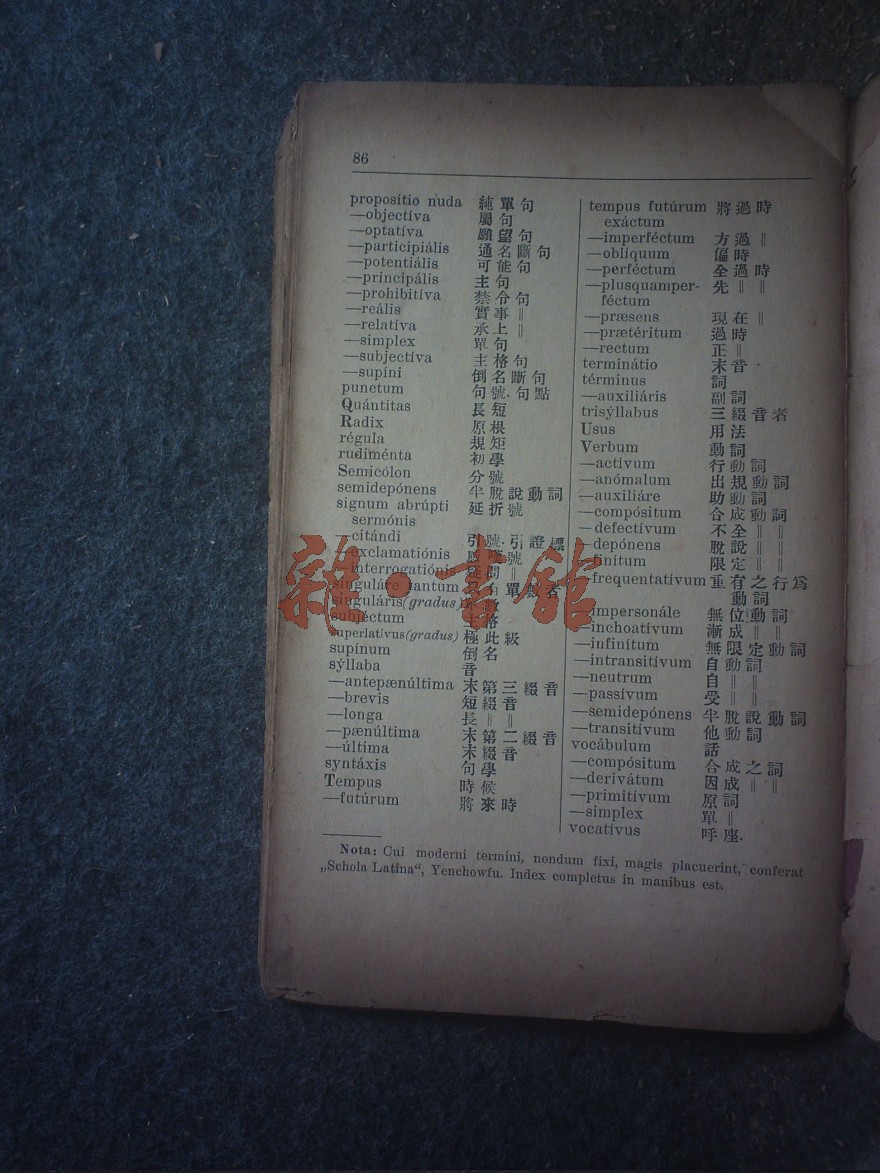 86
propositio nuda 純單句
—objectíva 屬句
—optatíva 願望句
—participiális 通名斷句
—potentiális 可能句
—principális 主句
—prohibitíva 禁令句
—reális 實事‖
—relatíva 承上‖
—simplex 單句
—subjectíva 主格句
—supíni 倒名斷句
punctum 句號·句點
Quántitas 長短
Radix 原根
régula 規矩
rudiménta 初學
Semicólon 分號
semidepónens 半脫說動詞
signum abrúpti 延折號
sermónis
—citándi 引號·引證標
—exclamatiónis 號
—interrogatiónis 問‖
singuláre tantum 單數者
singuláris (gradus)
subjéctum 主格
superlatívus (gradus) 極此級
supínum 倒名
sýllaba 音
—antepænúltima 末第三綴音
—brevis 短綴音
—longa 長‖‖
—pænúltima 末第二綴音
—última 末綴音
syntáxis 句學
Tempus 時候
—futúrum 將來時
tempus futúrum 將過時
exáctum
—imperféctum 方過‖
—oblíquum 偏時
—perféctum 全過時
—plusquamper- 先‖‖
féctum
—præsens 現在‖
—prætéritum 過時
—rectum 正‖
terminátio 末音
términus 詞
—auxiliáris 副詞
trisýllabus 三綴音者
Usus 用法
Verbum 動詞
—actívum 行動詞
—anómalum 出規動詞
—auxiliáre 助動詞
—compósitum 合成動詞
—defectívum 不全‖‖
—depónens 脫說‖‖
—finítum 限定‖‖
—frequentatívum 重有之行爲
動詞
—impersonále 無位動詞
—inchoatívum 漸成‖‖
—infinítum 無限定動詞
—intransitívum 自動詞
—neutrum 自‖‖
—passívum 受‖‖
—semidepónens 半脫說動詞
—transitívum 他動詞
vocábulum 話
—compósitum 合成之詞
—derivátum 因成‖‖
—primitívum 原詞
—simplex 單‖
vocatívus 呼座.
Nota: Cui moderni termini, nondum fixi, magis placuerint, conferat
„Schola Latina“, Yenchowfu. Index completus in manibus est.
雜·書館